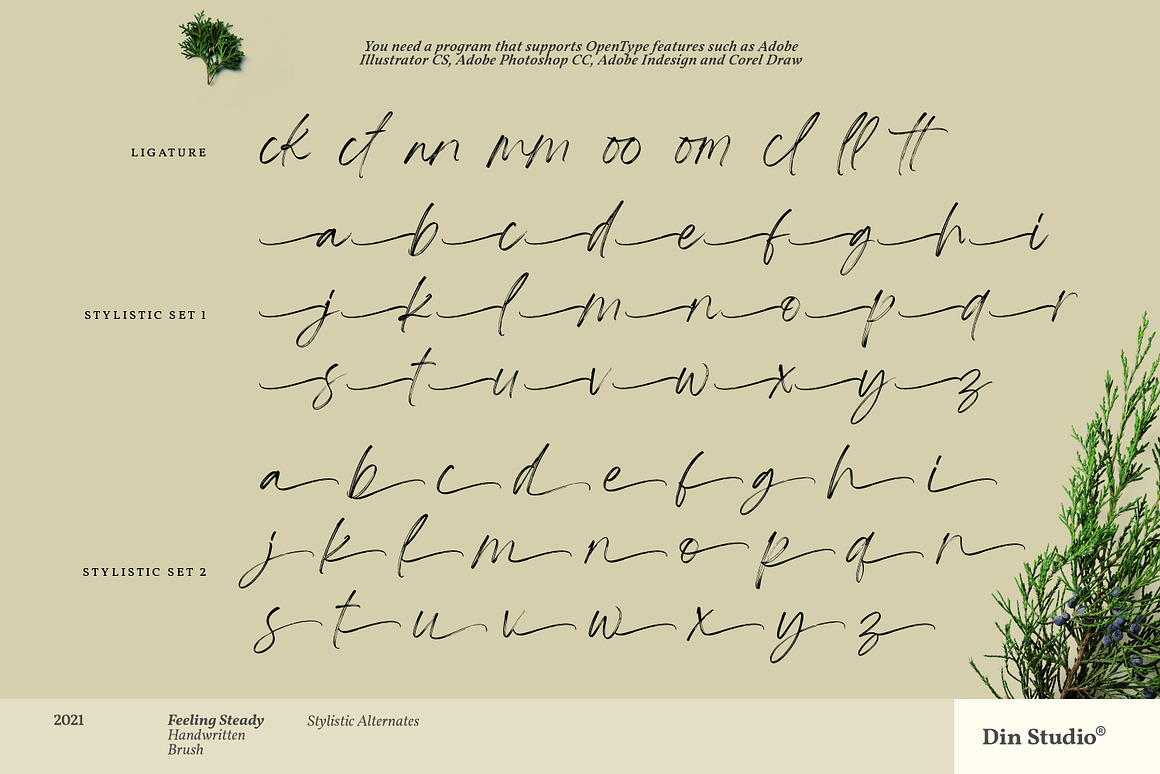 You need a program that supports OpenType features such as Adobe
Illustrator CS, Adobe Photoshop CC, Adobe Indesign and Corel Draw
LIGATURE
ck ct nn mm oo om cl ll tt
STYLISTIC SET 1
a b c d e f g h i
j k l m n o p q r
s t u v w x y z
STYLISTIC SET 2
a b c d e f g h i
j k l m n o p q r
s t u v w x y z
2021
Feeling Steady
Handwritten
Brush
Stylistic Alternates
Din Studio®